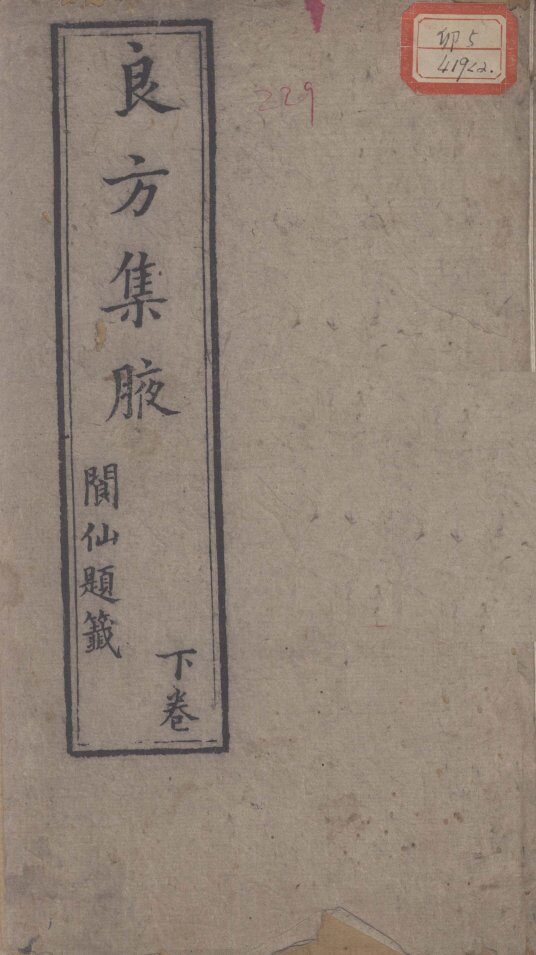 良方集腋
閬仙題籤
下卷
229
卯5
419<2.